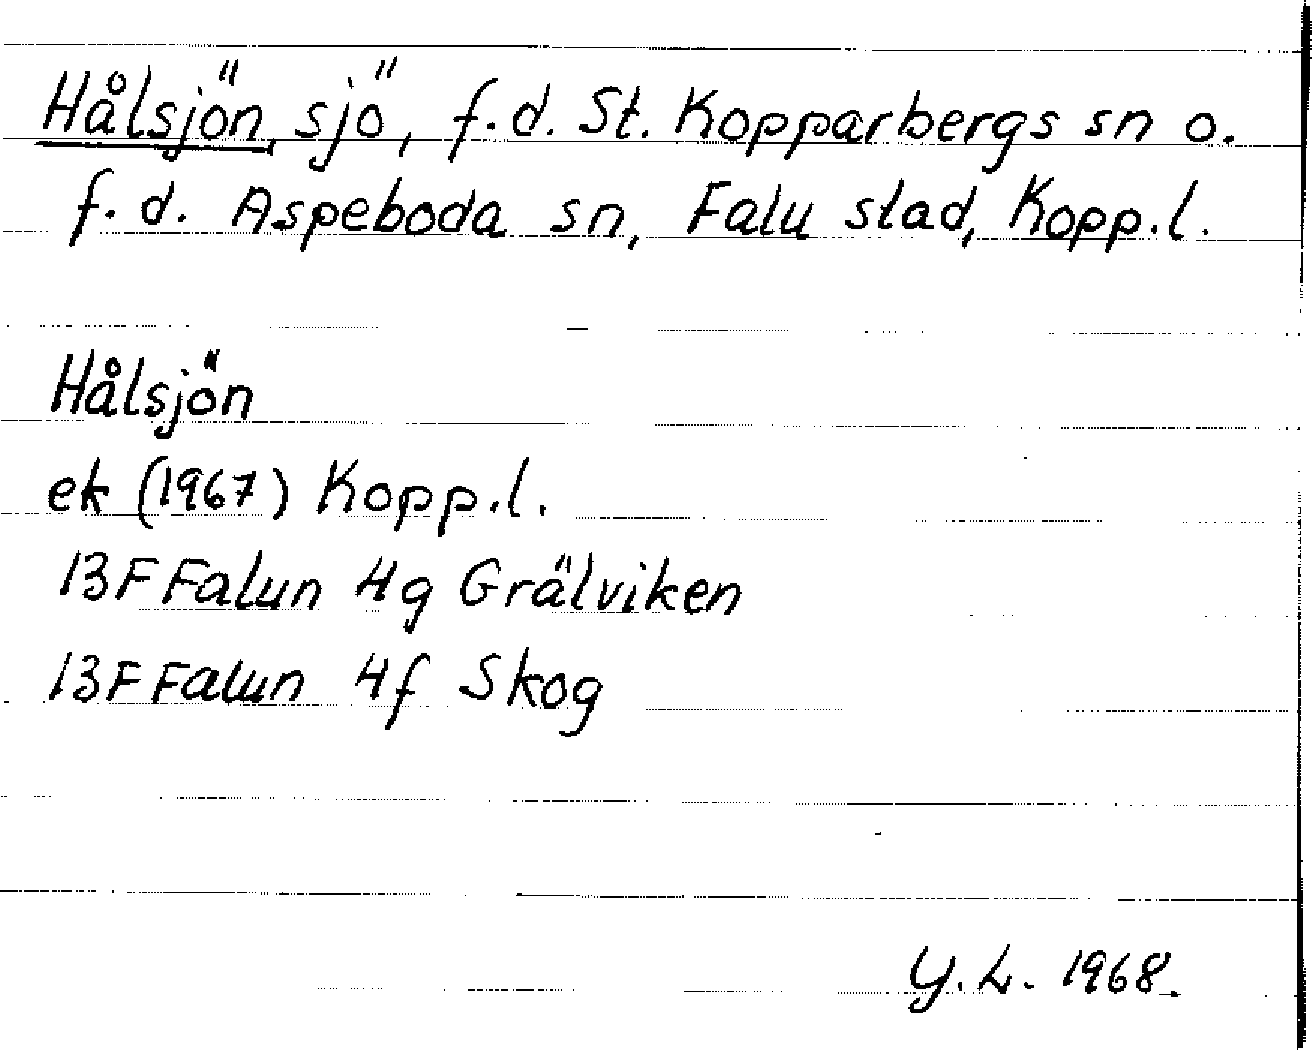 Hålsjön, sjö, f.d. St. Kopparbergs sn o.
f.d. Aspeboda sn, Falu stad, Kopp.l.
Hålsjön
ek (1967) Kopp.l.
13F Falun 4g Grälviken
13F Falun 4f Skog
Y.L. 1968.